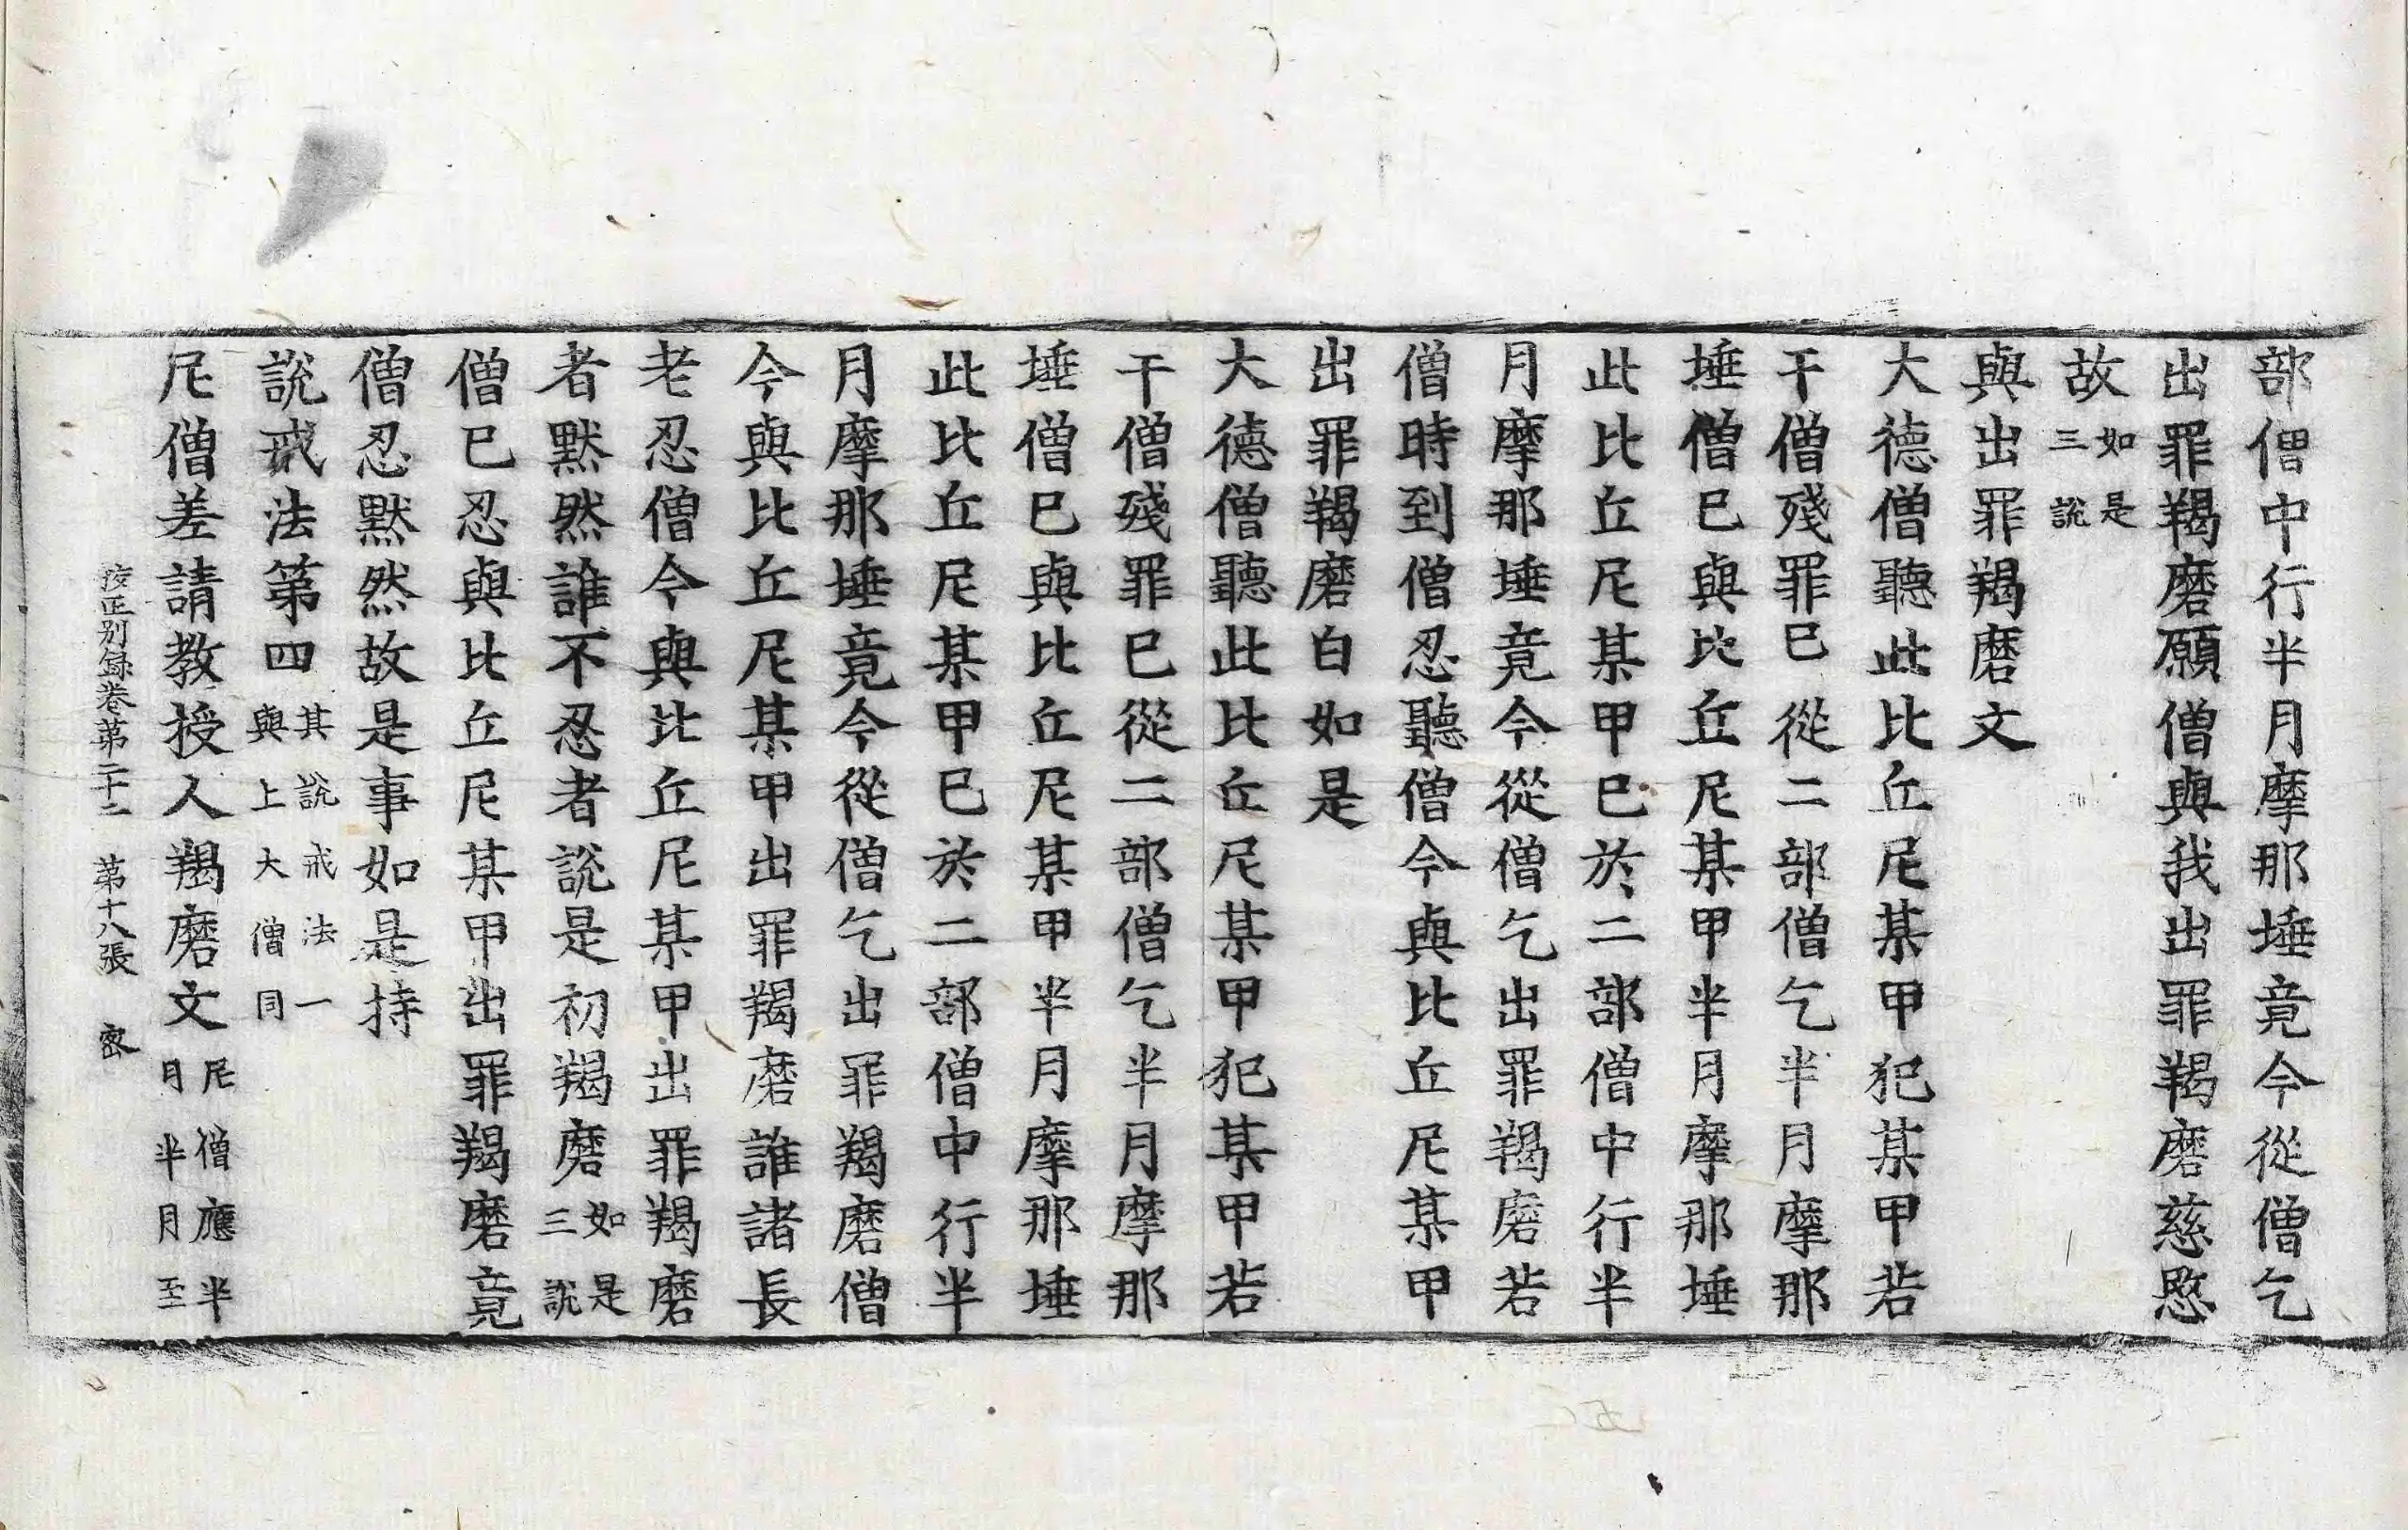 部僧中行半月摩那埵竟今從僧乞
出罪羯磨願僧與我出罪羯磨慈愍
故如是三說
與出罪羯磨文
大德僧聽此比丘尼某甲犯某甲若
干僧殘罪已從二部僧乞半月摩那
埵僧已與比丘尼某甲半月摩那埵
此比丘尼某甲已於二部僧中行半
月摩那埵竟今從僧乞出罪羯磨若
僧時到僧忍聽僧今與比丘尼某甲
出罪羯磨白如是
大德僧聽此比丘尼某甲犯某甲若
干僧殘罪已從二部僧乞半月摩那
埵僧已與比丘尼某甲半月摩那埵
此比丘尼某甲已於二部僧中行半
月摩那埵竟今從僧乞出罪羯磨僧
今與比丘尼某甲出罪羯磨誰諸長
老忍僧今與比丘尼某甲出罪羯磨
者默然誰不忍者說是初羯磨如是三說
僧已忍與比丘尼某甲出罪羯磨竟
僧忍默然故是事如是持
說戒法第四其說戒法一與上大僧同
尼僧差請教授人羯磨文尼僧應半月半月至
校正別錄卷第二十二 第十八張 密